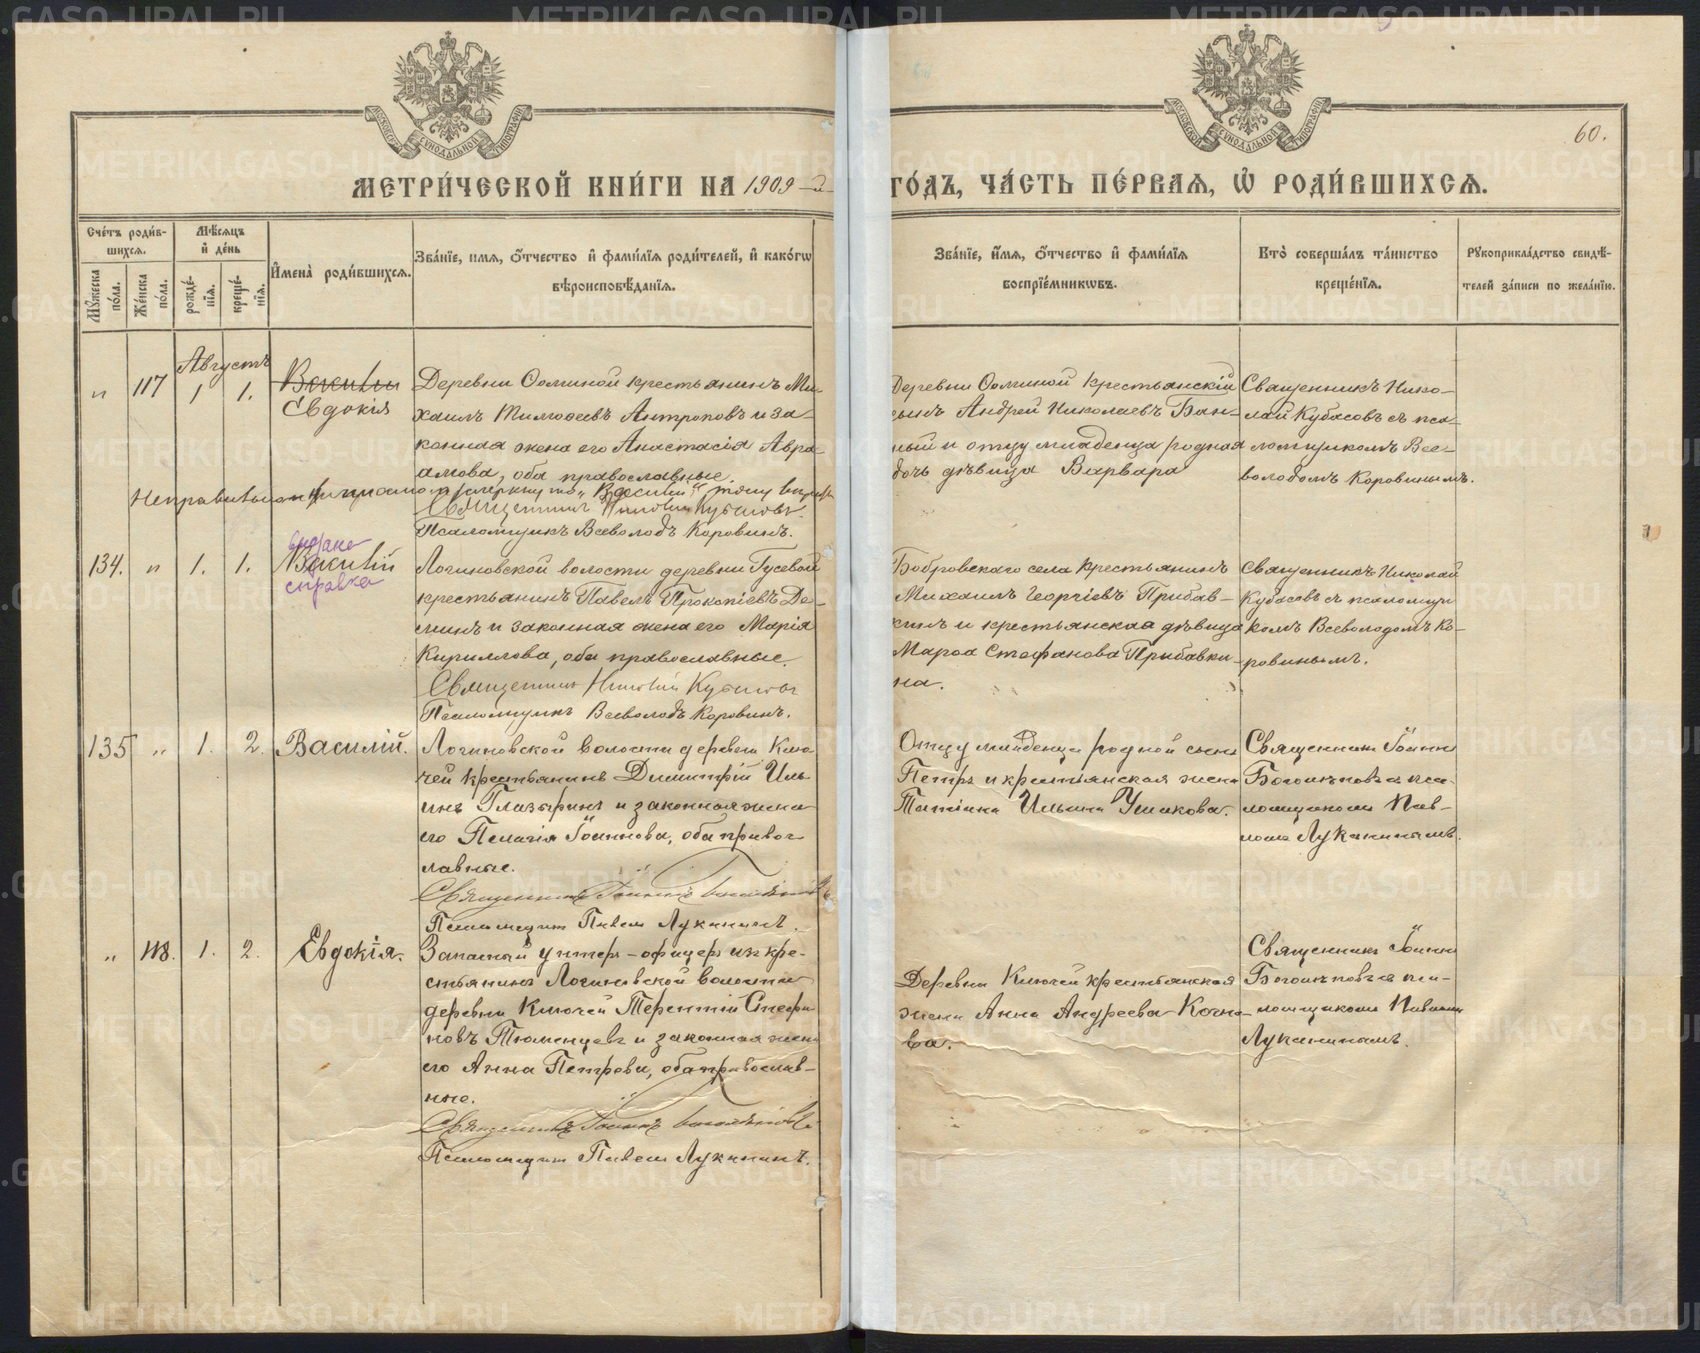 МОСКОВСКОЙ СѴНОДАЛЬНОЙ ТИПОГРАФІИ
МОСКОВСКОЙ СѴНОДАЛЬНОЙ ТИПОГРАФІИ
60.
МЕТРИ́ЧЕСКОЙ КНИ́ГИ НА 1909-й
ГО́ДЪ, ЧА́СТЬ ПЕ́РВАЯ, Ѡ҆ РОДИ́ВШИХСѦ.
Сче́тъ роди́в-
шихсѧ.
Мꙋ́жеска по́ла.
Же́нска по́ла.
Мѣ́сѧцъ
и҆ де́нь
рожде́-
нїѧ.
креще́-
нїѧ.
И҆мена̀ роди́вшихсѧ.
Зва́нїе, имѧ, ѻ҆́тчество и҆ фами́лїѧ роди́телей, и҆ како́гѡ
вѣроисповѣ́данїѧ.
Зва́нїе, и҆́мѧ, ѻ҆́тчество и҆ фами́лїѧ
воспрїе́мникѡвъ.
Кто̀ соверша́лъ та́инство
креще́нїѧ.
Рꙋкоприкла́дство свидѣ́-
телей за́писи по жела́нїю.
Августъ
" 117 1 1.
Евдокія
Деревни Соминой крестьянинъ Ми-
хаилъ Тимоѳеевъ Антроповъ и за-
конная жена его Анастасія Авра-
амова, оба православные.
Неправильно
Священникъ Николай Кубасовъ.
Псаломщикъ Всеволодъ Коровинъ.
Деревни Соминой крестьянскій
сынъ Андрей Николаевъ Бан-
ный и отцу младенца родная
дочь дѣвица Варвара
Священникъ Нико-
лай Кубасовъ съ пса-
ломщикомъ Все-
володомъ Коровинымъ.
134. " 1. 1.
выдана
Василій
справка
Логиновской волости деревни Гусевой
крестьянинъ Павелъ Прокопіевъ Де-
минъ и законная жена его Марія
Кириллова, оба православные.
Священникъ Николай Кубасовъ
Псаломщикъ Всеволодъ Коровинъ.
Бобровскаго села крестьянинъ
Михаилъ Георгіевъ Прибав-
кинъ и крестьянская дѣвица
Марѳа Стефанова Прибавки-
на.
Священникъ Николай
Кубасовъ съ псаломщи
комъ Всеволодомъ Ко-
ровинымъ.
135 " 1. 2. Василій.
Логиновской волости деревни Клю
чей крестьянинъ Димитрій Иль
инъ Глазыринъ и законная жена
его Пелагія Іоаннова, оба правос
лавные.
Священникъ Іоаннъ
Псаломщикъ Павелъ Луканинъ.
Отцу младенца родной сынъ
Петръ и крестьянская жена
Татіана Ильина Ушакова.
Священникъ Іоаннъ
Боголѣповъ съ пса-
ломщикомъ Пав-
ломъ Луканинымъ.
" 118. 1. 2. Евдокія.
Запасный унтеръ-офицеръ изъ кре-
стьянинъ Логиновской волости
деревни Ключей Терентій Стефа
новъ Тюменцевъ и законная жена
его Анна Петрова, оба православ-
ные.
Священникъ Іоаннъ
Псаломщикъ Павелъ Луканинъ.
Деревни Ключей крестьянская
жена Анна Андреева Кочне-
ва.
Священникъ Іоаннъ
Боголѣповъ съ пса-
ломщикомъ Павломъ
Луканинымъ.
METRIKI.GASO-URAL.RU